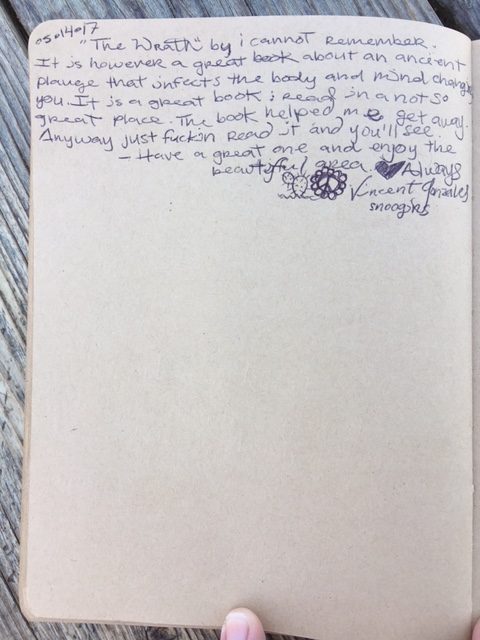 05.14.17
"The Wrath" by i cannot remember.
It is however a great book about an ancient
plauge that infects the body and mind changing
you. It is a great book i read in a not so
great place. The book helped me get away.
Anyway just fuckin read it and you'll see.
- Have a great one and enjoy the
beautiful area. ♥ Always
Vincent Gonzales
snoogins